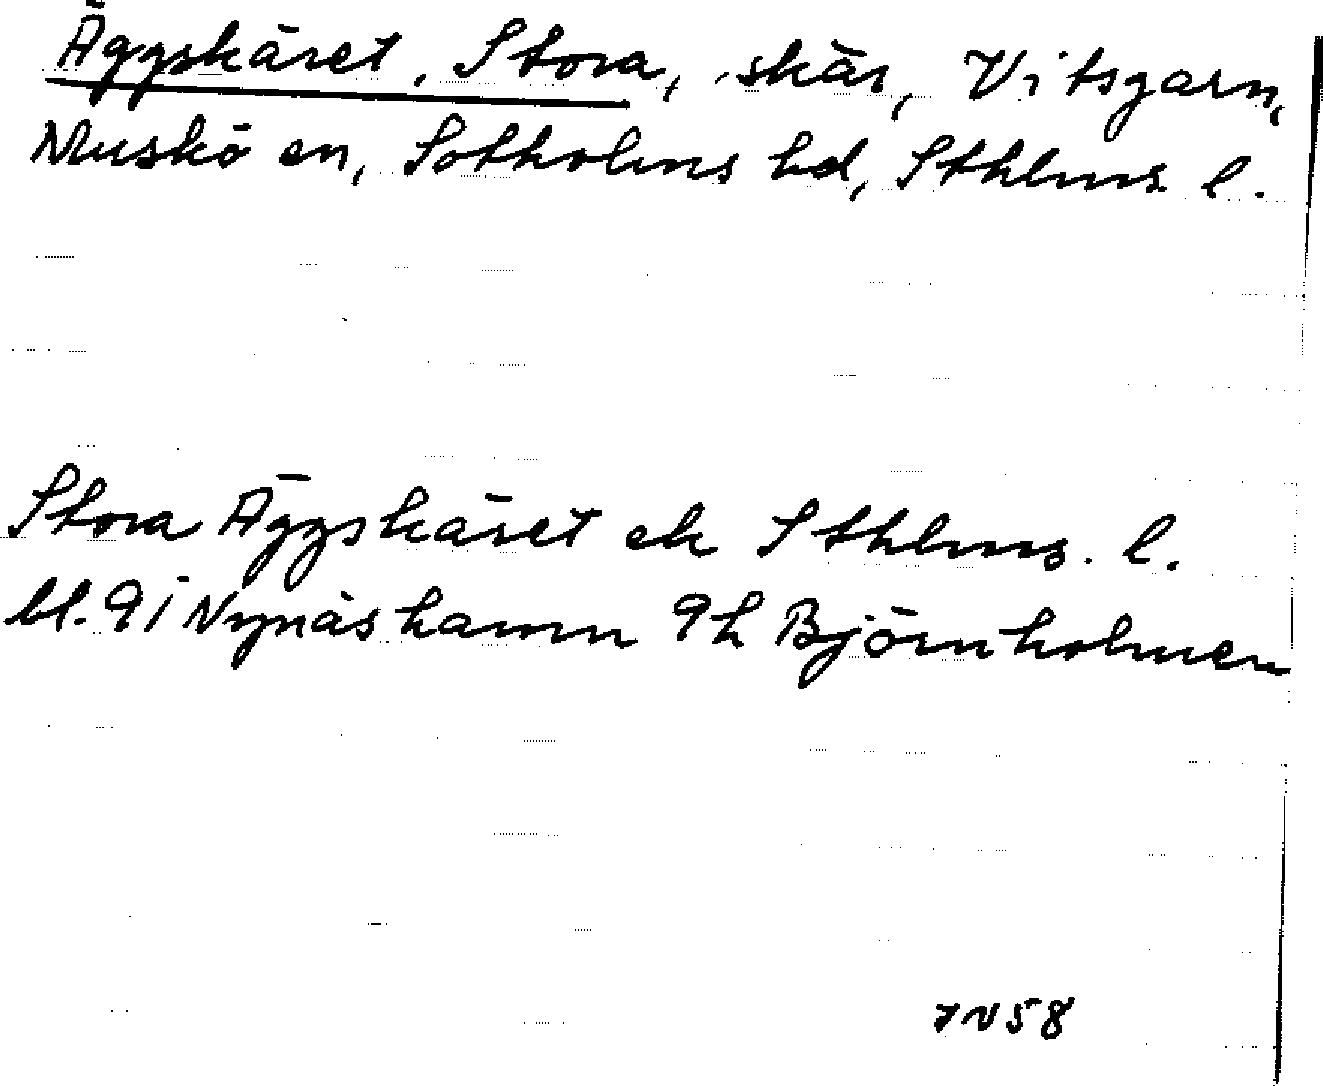 Äggskäret, Stora, skär, Vitsgarn,
Muskö en, Sotholms hd, Sthlms l.
Stora Äggskäret ek Sthlms. l.
bl. 9i Nynäshamn 9h Björnholmen
JN58